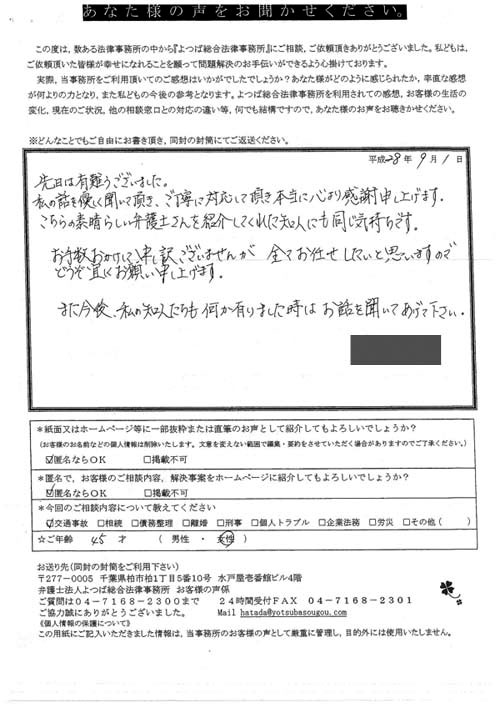 あなた様の声をお聞かせください。
この度は、数ある法律事務所の中から『よつば総合法律事務所』にご相談、ご依頼頂きありがとうございました。私どもは、
ご依頼頂いた皆様が幸せになれることを願って問題解決のお手伝いができるよう心掛けております。
実際、当事務所をご利用頂いてのご感想はいかがでしたでしょうか?あなた様がどのように感じられたか、率直な感想
が何よりの力となり、また私どもの今後の参考となります。よつば総合法律事務所を利用されての感想、お客様の生活の
変化、現在のご状況、他の相談窓口との対応の違い等、何でも結構ですので、あなた様のお声をお聴きかせください。
※どんなことでもご自由にお書き頂き、同封の封筒にてご返送ください。
平成28年9月1日
先日は有難うございました。
私の話を優しく聞いて頂き、ご丁寧に対応して頂き本当に心より感謝申し上げます。
こちらの素晴らしい弁護士さんを紹介してくれた知人にも同じ気持ちです。
お手数おかけして申し訳ございませんが 全てお任せしたいと思っていますので
どうぞ宜しくお願い申し上げます。
また今後、私の知人たちも何か有りました時は お話を聞いてあげて下さい。
*紙面又はホームページ等に一部抜粋または直筆のお声として紹介してもよろしいでしょうか?
(お客様のお名前などの個人情報は削除いたします。文意を変えない範囲で編集・要約をさせていただく場合がありますのでご了承ください。)
☑匿名ならOK □掲載不可
*匿名で、お客様のご相談内容、解決事案をホームページに紹介してもよろしいでしょうか?
☑匿名ならOK □掲載不可
*今回のご相談内容について教えてください
☑交通事故 □相続 □債務整理 □離婚 □刑事 □個人トラブル □企業法務 □労災 □その他( )
☆ご年齢 45 才 ( 男性 ・ 女性 )
お送り先(同封の封筒をご利用下さい)
〒277-0005 千葉県柏市柏1丁目5番10号 水戸屋壱番館ビル4階
弁護士法人よつば総合法律事務所 お客様の声係
ご質問は04-7168-2300まで 24時間受付FAX 04-7168-2301
ご協力誠にありがとうございました。 Mail hatada@yotsubasougou.com
《個人情報の保護について》
この用紙にご記入いただきました情報は、当事務所のお客様の声として厳重に管理し、目的外には使用いたしません。